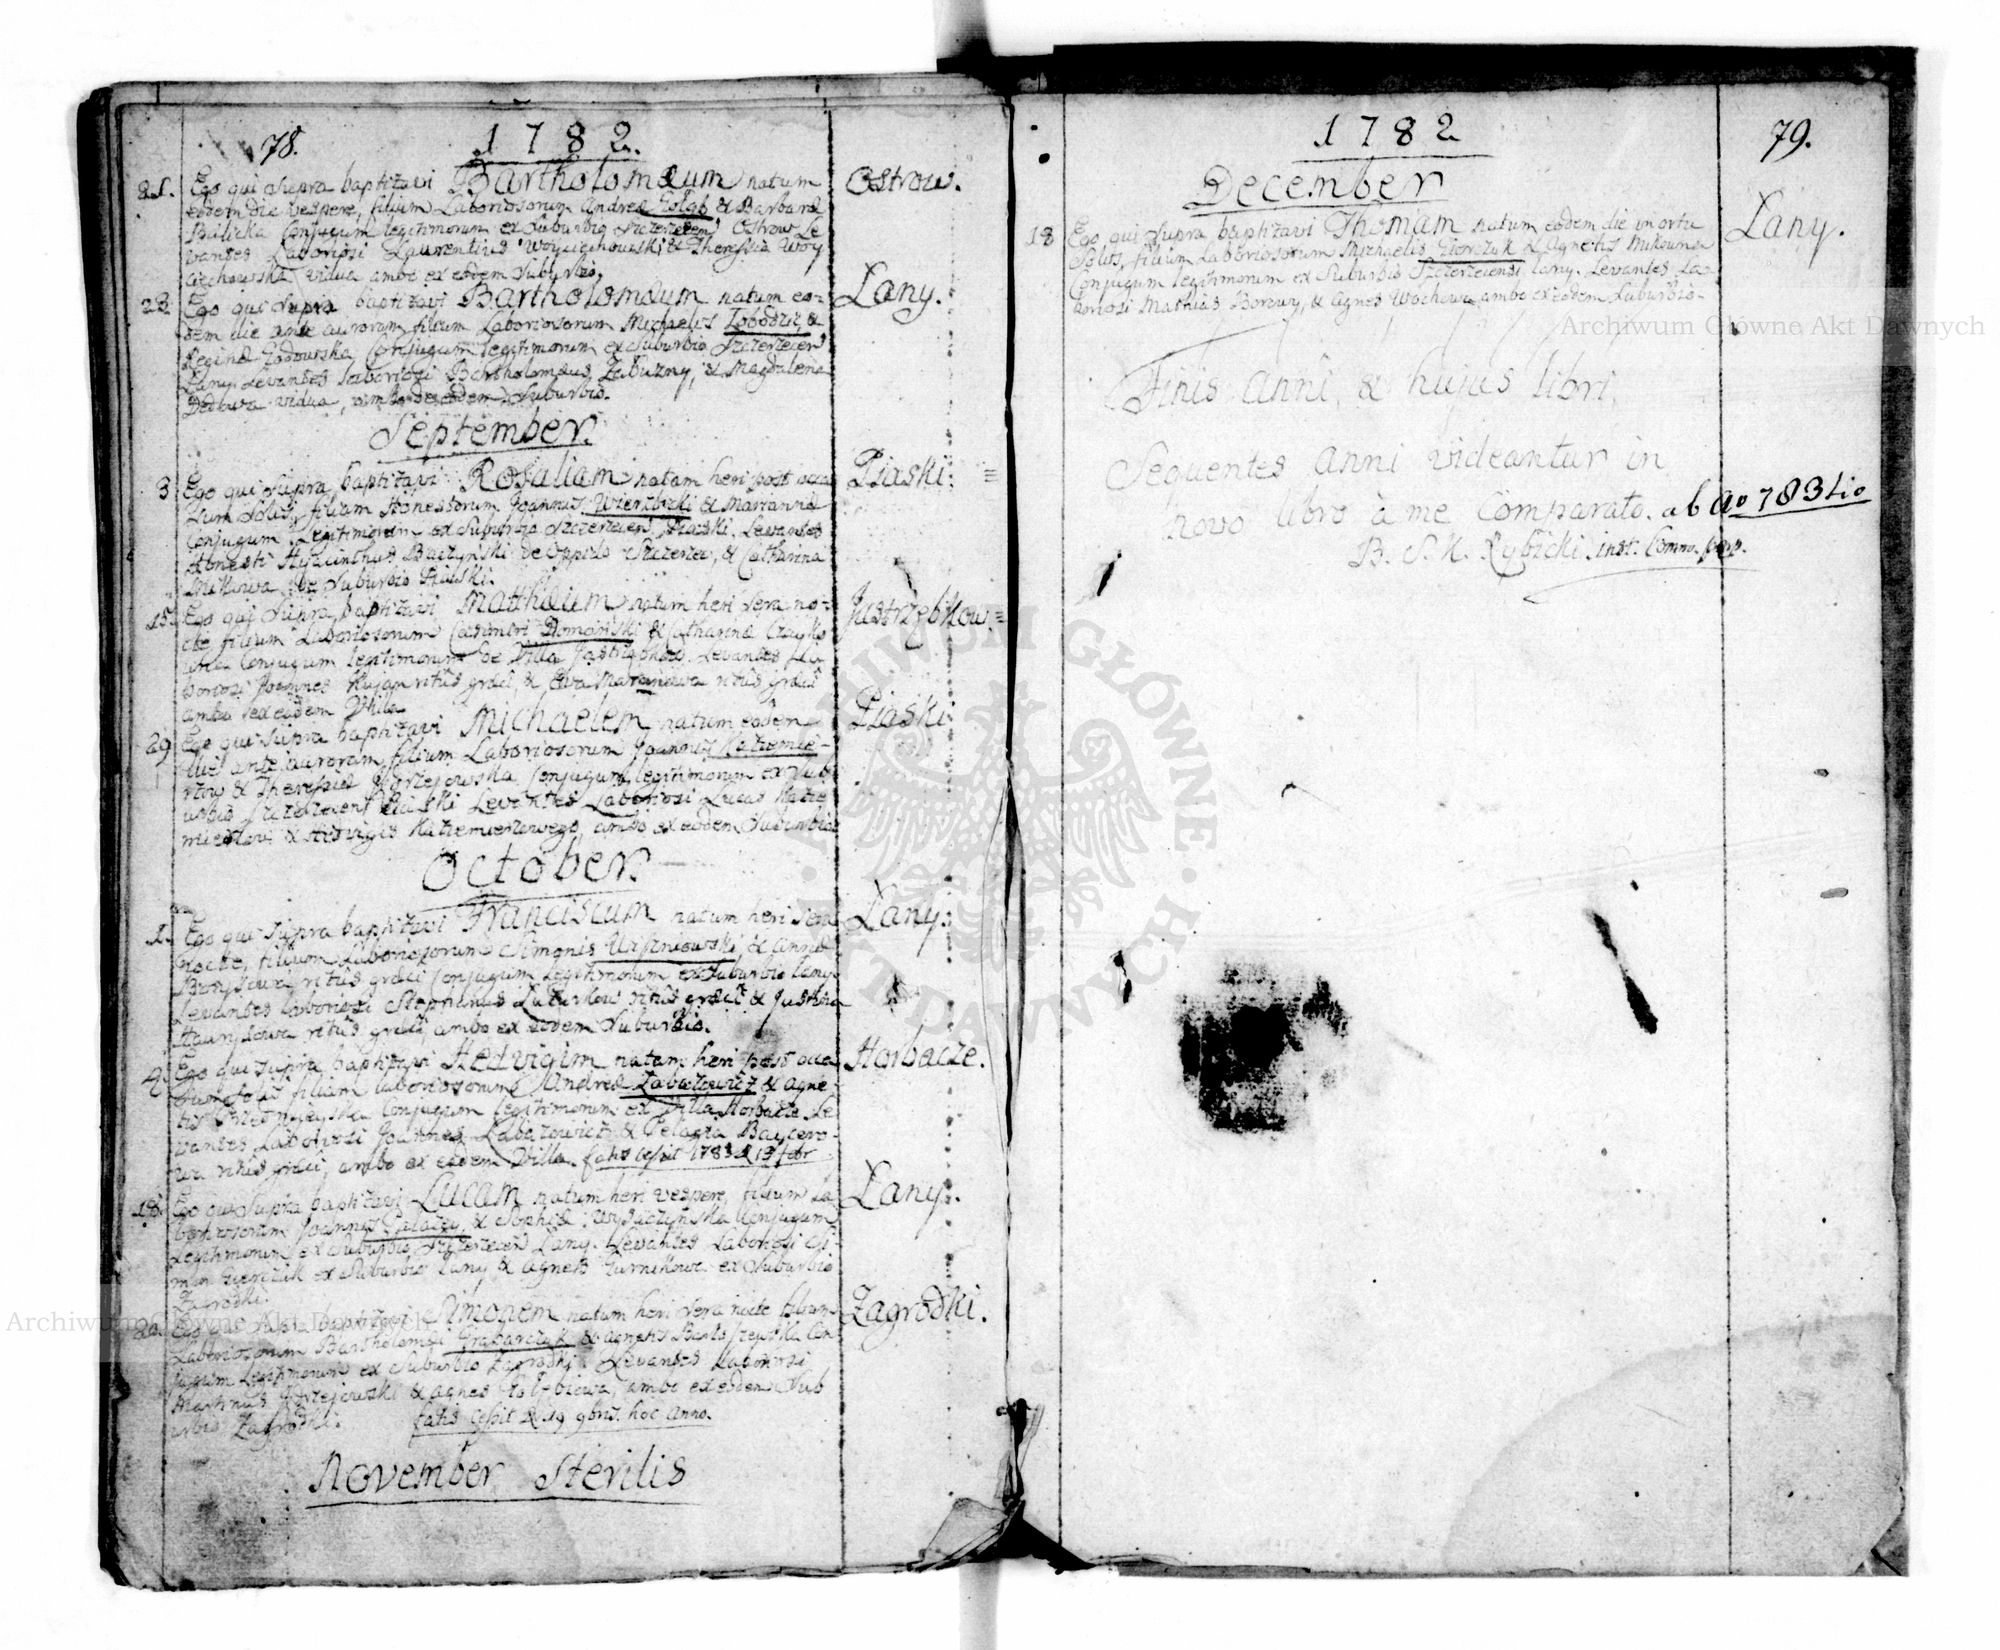 78.
1782.
21. Ego qui supra baptizavi Bartholomæum natum
eodem die vespere, filium Laboriosorum Andreæ Gołąb & Barbaræ
Balicka Conjugum legitimorum ex Suburbio Szczerzecen Ostrow Le
vantes Laboriosi Laurentius Woyciechowski & Theressia Woy
ciechowska vidua ambo ex eodem Suburbio.
Ostrow.
28. Ego qui supra baptizavi Bartholomæum natum eo=
dem die ante auroram, filium Laboriosorum Michaelis &
Reginæ Conjugum legitimorum ex Suburbio Szczerzecen
Lany. Levantes Laboriosi Bartholomæus Zabuzny, & Magdalena
vidua, ambo de eodem Suburbio.
Lany.
September.
3 Ego qui supra baptizavi Rosaliam natam heri post occa
sum solis, filiam Honestorum Joannis Wierzbicki & Mariannæ
Conjugum Legitimorum ex Suburbio Szczerzecen Piaski. Levantes
Honesti Hyacinthus Baczynski de Oppido Szczerzec, & Catharina
Mikowa de Suburbio Piaski.
Piaski.
15. Ego qui supra baptizavi Matthæum natum heri sera no=
cte filium Laboriosorum Casimiri Domanski & Catharinæ
Conjugum legitimorum de Villa Jastrzębkow. Levantes La
boriosi Joannes ritûs græci, & Eva ritûs græci
ambo ex eadem Villa
Jastrzębkow.
29 Ego qui supra baptizavi Michaelem natum eodem
die ante auroram, filium Laboriosorum Joannis
& Theressiæ Conjugum legitimorum ex Sub
urbio Szczerzecen Piaski Levantes Laboriosi Lucas
& Hedvigis ambo ex eodem Suburbio
Piaski
October.
1. Ego qui supra baptizavi Franciscum natum heri sera
nocte, filium Laboriosorum Simonis Wiszniowski & Annæ
ritûs græci Conjugum Legitimorum ex Suburbio Lany.
Levantes Laboriosi Stephanus ritûs græci & Justina
ritûs græci, ambo ex eodem Suburbio.
Lany.
4. Ego qui supra baptizavi Hedvigim natam heri post occa
sum solis filiam laboriosorum Andreæ Łabazowicz & Agne
tis Conjugum legitimorum ex Villa Horbacze Le
vantes Laboriosi Joannes Łabazowicz & Pelagia
ritûs græci, ambo ex eadem Villa. fatis cessit 1783 d 13 febr
Horbacze.
18. Ego qui supra baptizavi Lucam natum heri vespere, filium La
boriosorum Joannis & Sophiæ Conjugum
Legitimorum ex Suburbio Szczerzecen Lany. Levantes Laboriosi Si
mon ex Suburbio Lany & Agnes ex Suburbio
Zagrodki.
Lany.
Ego qui supra baptizavi Simonem natum heri sera nocte filium
Laboriosorum Bartholomæi Grabarczuk & Agnetis Con
jugum Legitimorum ex Suburbio Zagrodki. Levantes Laboriosi
Martinus & Agnes ambo ex eodem Sub
urbio Zagrodki. fatis cessit d. 19 9bris. hoc Anno.
Zagrodki.
November Sterilis
79.
1782
December
18 Ego qui supra baptizavi Thomam natum eodem die in ortu
Solis, filium Laboriosorum Michaelis & Agnetis
Conjugum legitimorum ex Suburbio Szczerzecensi Lany. Levantes La=
boriosi Mathias Borowy, & Agnes ambo ex eodem Suburbio.
Lany.
Finis Anni, & hujus libri.
Sequentes Anni videantur in
novo libro à me Comparato. ab Ao 783tio
B. S. K. Rybicki
Archiwum Główne Akt Dawnych
Archiwum Główne Akt Dawnych
ARCHIWUM GŁÓWNE AKT DAWNYCH